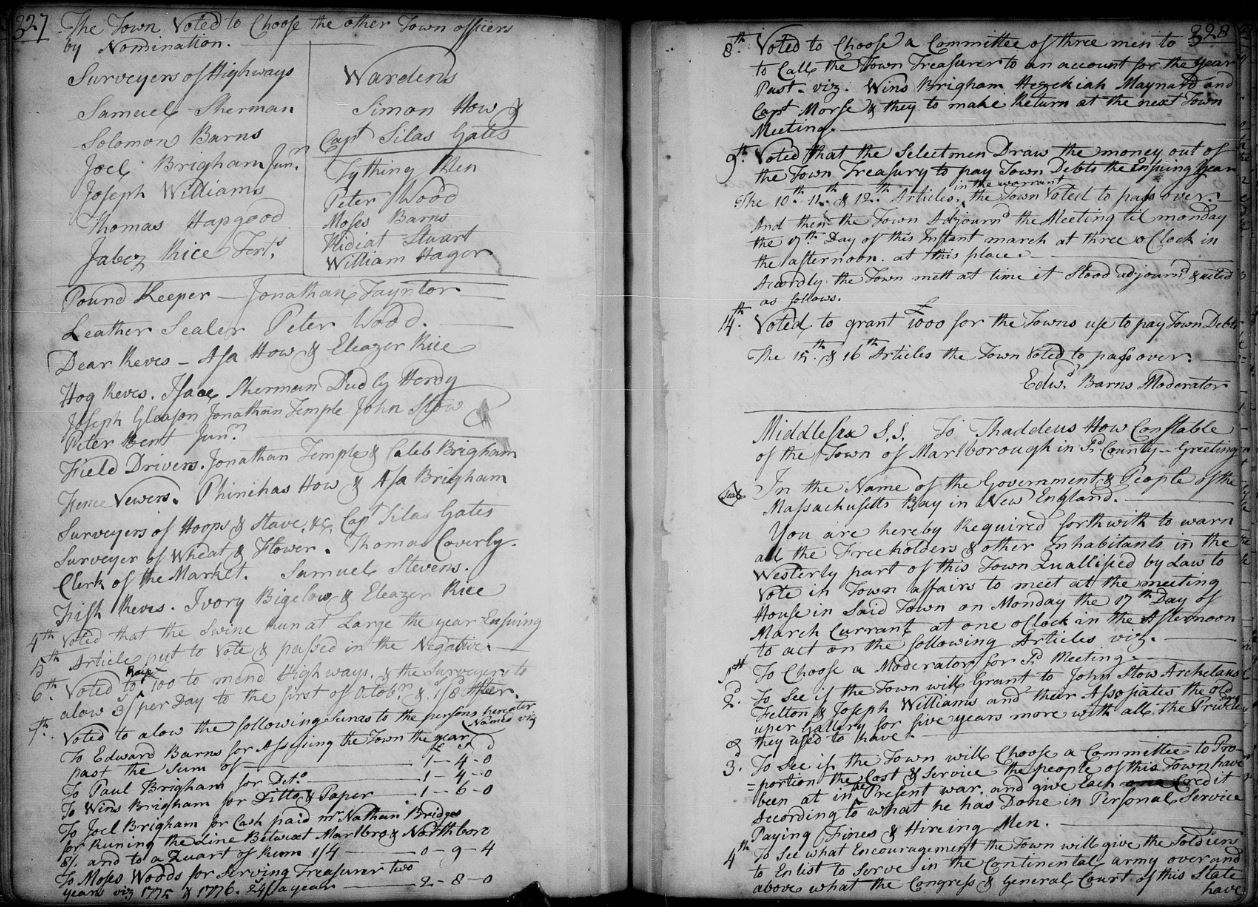 327
The Town Voted to Choose the other Town officers
by Nomination.
Surveyers of Highways
Samuel Sherman
Solomon Barns
Joel Brigham Junr
Joseph Williams
Thomas Hapgood
Jabez Rice Terts.
Wardens
Simon How &
Capt Silas Gates
Tything Men
Peter Wood
Moses Barns
Ridiat Stuart
William Hager
Pound Keeper Jonathan Tayntor
Leather Sealer Peter Wood.
Dear Reves - Asa How & Eleazer Rice
Hog Reves. Isaac Sherman Dudly Hardy
Joseph Gleason Jonathan Temple John Stow
Peter Bent Junr.
Field Drivers. Jonathan Temple & Caleb Brigham
Fence Vewers. Phinihas How & Asa Brigham
Surveyers of Hoops & Stave &c Capt Silas Gates
Surveyer of Wheat & Flower. Thomas Coverly.
Clerk of the Market. Samuel Stevens.
Fish Reves. Ivory Bigelow & Eleazer Rice
4th Voted that the Swine Run at Large the year Ensuing
5th Article put to Vote & passed in the Negative.
6th. Voted to Raise 700 to mend Highways, & the Surveyers to
alow 3/ per Day to the first of Octobr & 1/8 After.
7th. Voted to alow the following Sums to the persons hereafter
Names viz
To Edward Barns for Assessing the Town the year £ S D
past the Sum of 1-4-0
To Paul Brigham for Dito 1-4-0
To Wins Brigham for Ditto & Paper 1-6-0
To Joel Brigham for Cash paid mr Nathan Bridges
for Runing the Line Betwixt Marlbro & Northboro
8/ and to a Quart of Rum 1/4 0-9-4
To Moses Woods for Serving Treasurer two
years viz 1775 & 1776. 24/ a year 2-8-0
328
8th. Voted to Choose a Committee of three men to
to Call the Town Treasurer to an account for the year
Past. viz. Wins Brigham Hezekiah Maynard and
Capt Morse & they to make Return at the next Town
Meeting.
9th. Voted that the Selectmen Draw the money out of
the Town Treasury to pay Town Debts the Ensuing year
The 10th. 11th & 12th Articles, in the warrant the Town Voted to pass over.
And then the Town Adjournd the Meeting til monday
the 17th Day of this Instant march at three o Clock in
the afternoon. at this place
Acordly. the Town mett at time it Stood adjournd & voted
as follows.
14th. Voted to grant £1000 for the Towns use to pay Town Debts
The 15th & 16th Articles the Town Voted to pass over.
Edwd. Barns Moderator
Middlesex S.S. To Thaddeus How Constable
of the Town of Marlborough in sd County - Greeting
Seal In the Name of the Government & People of the
Massachusetts Bay in New England.
You are hereby Required forthwith to warn
all the Freeholders & other Inhabitants in the
Westerly part of this Town Quallified by Law to
Vote in Town affairs to meet at the meeting
House in Said Town on Monday the 17th Day of
March Currant at one o Clock in the Afternoon
to act on the following Articles viz.
1st To Choose a Moderator for sd Meeting
2d. To See if the Town will Grant to John Stow Archelaus
Felton & Joseph Williams and their Associates the old
uper Gallery for five years more with all the Priviledges
they used to have
3d. To See if the Town will Choose a Committee to Pro-
=portion the Cost & Service the people of this Town have
been at in the Present war, and give Each Credit
According to what he has Done in Personal Service
Paying Fines & Hireing Men.
4th To See what Encouragement the Town will give the Soldiers
to Enlist to Serve in the Continental army over and
above what the Congress & General Court of this State
have